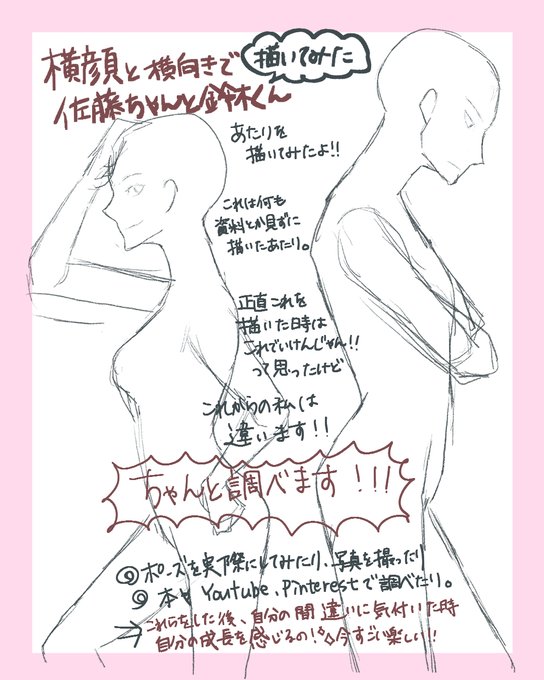 横顔と横向きで
描いてみた
佐藤ちゃんと鈴木くん
あたりを
描いてみたよ!!
これは何も
資料とか見ずに
描いたあたり。
正直これを
描いた日時は
これでいけんじゃん!!
って思ったけど
これからの私は
違います!!
ちゃんと調べます!!!
◎ポーズを実際にしてみたり、写真を撮ったり
◎本やYoutube、Pinterestで調べたり。
→これらをした後、自分の間違いに気付いた時
自分の成長を感じるの!◇◇今すごい楽しい!!